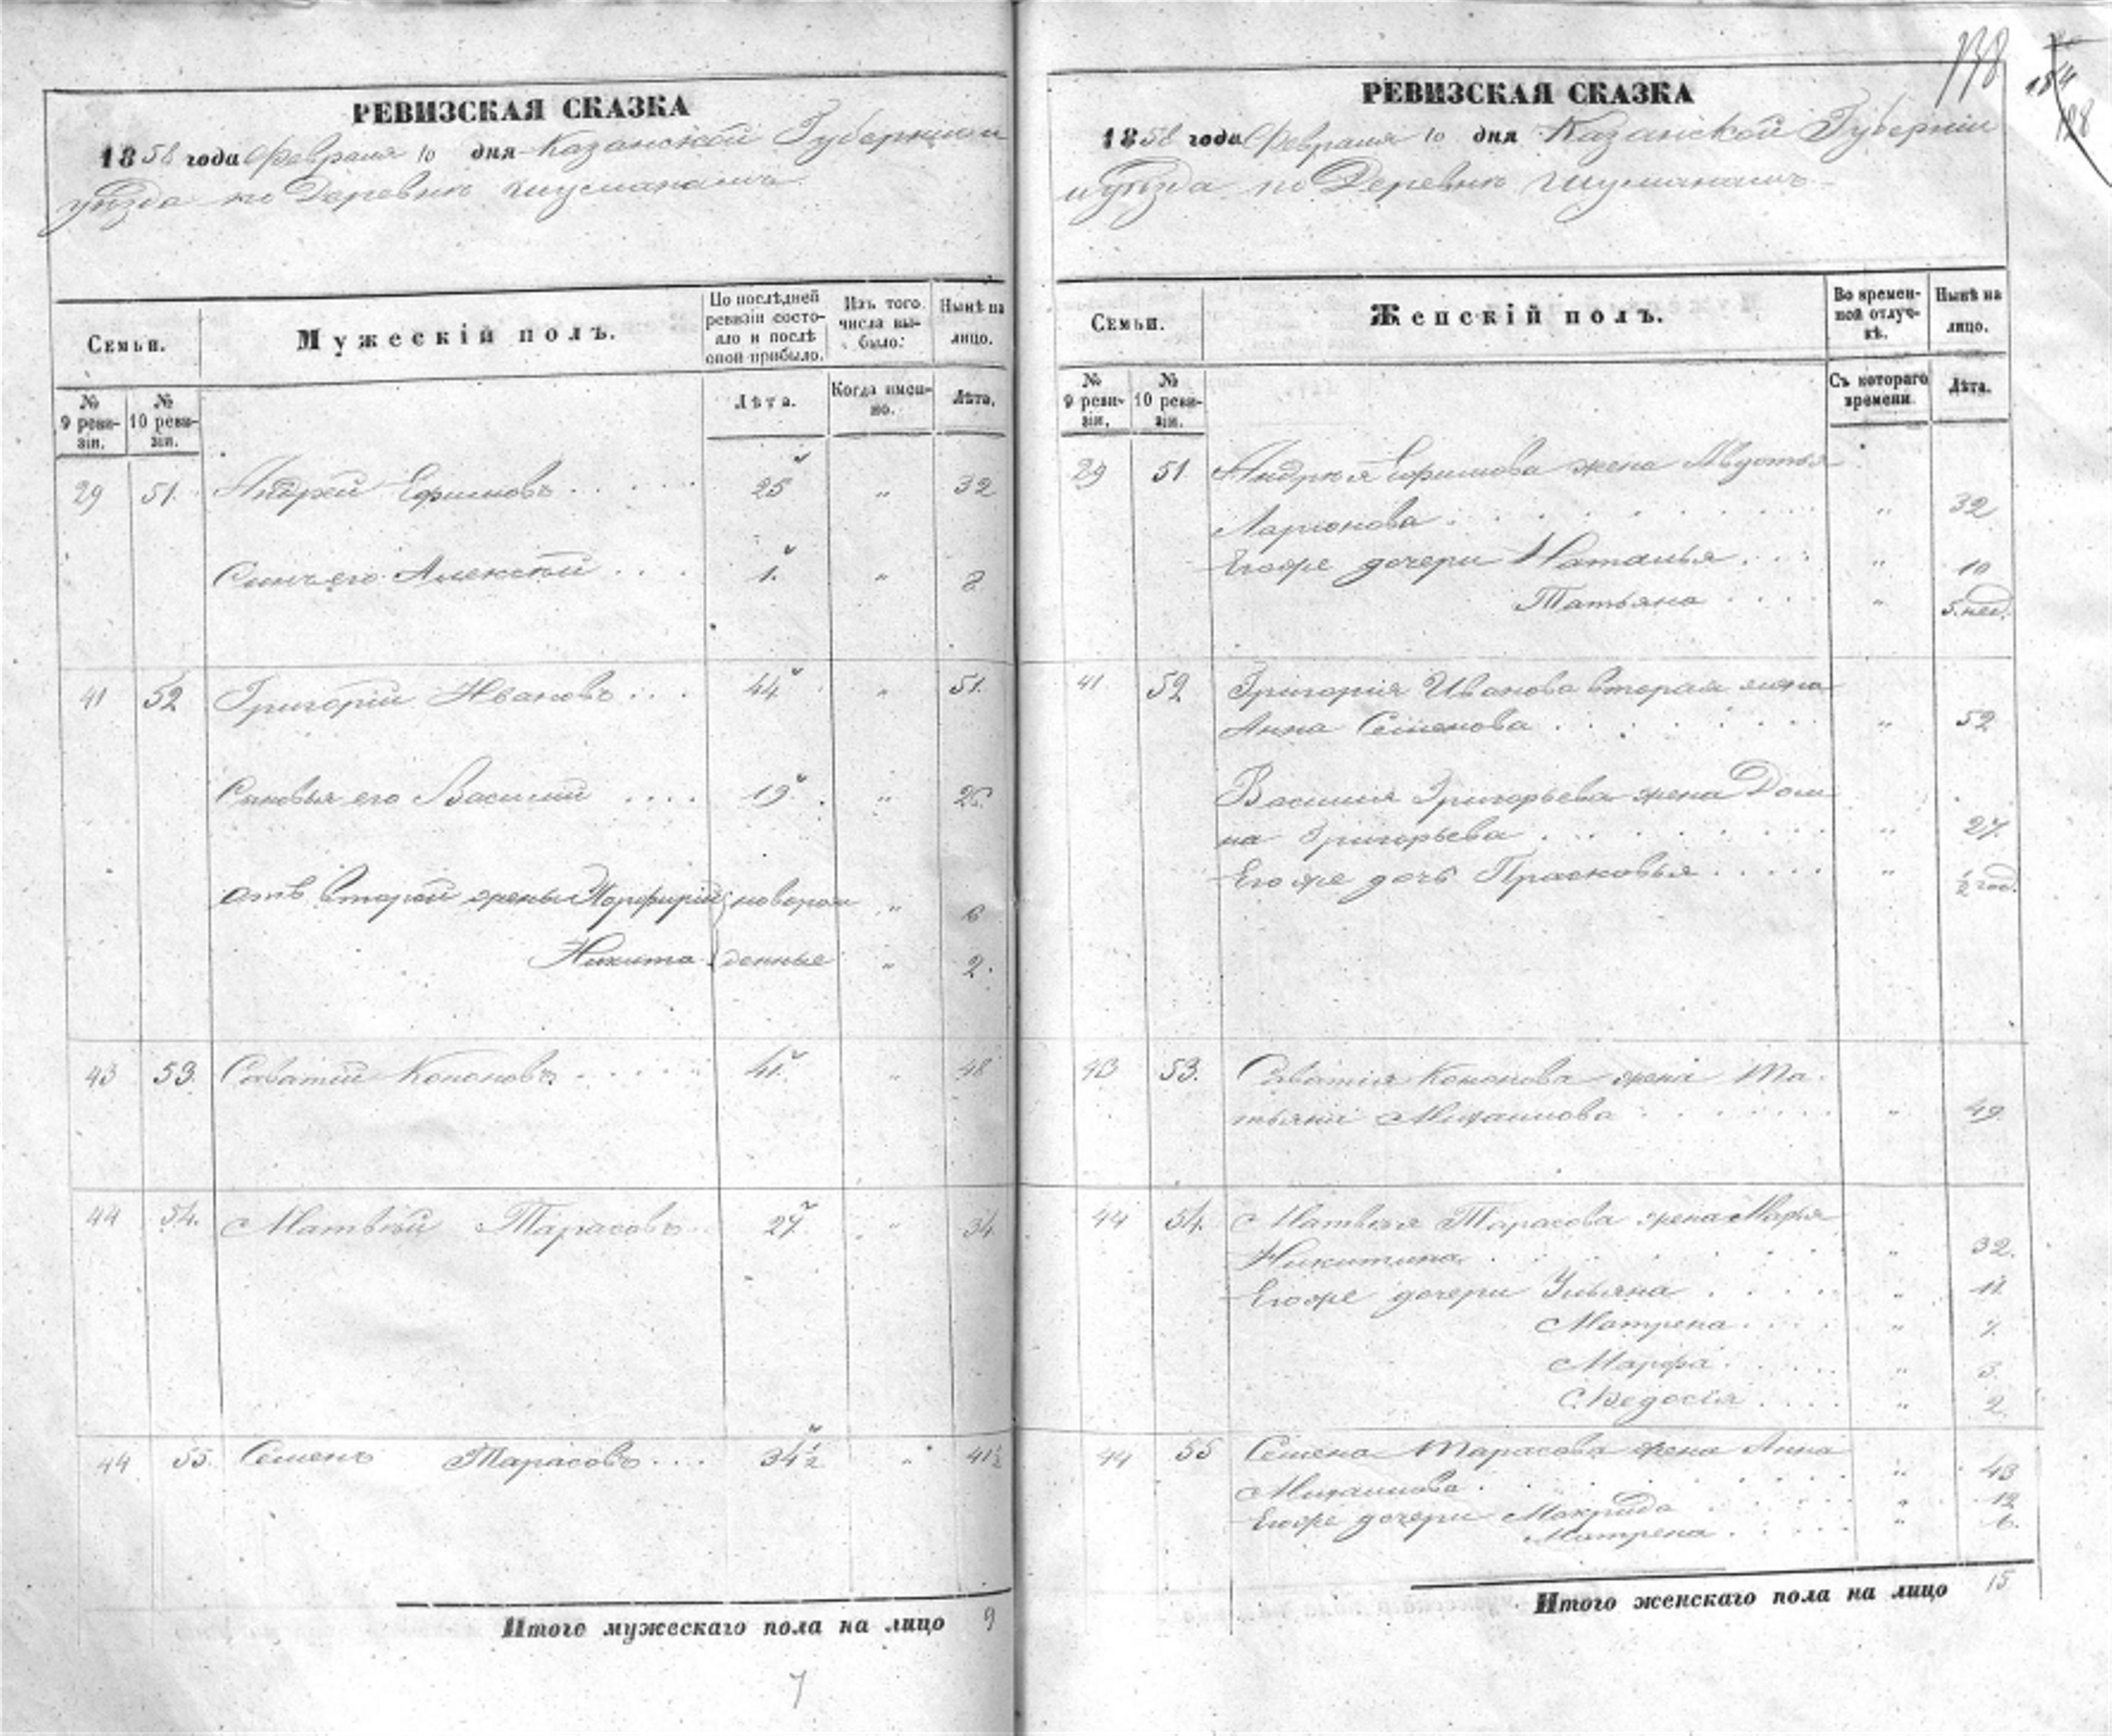 РЕВИЗСКАЯ СКАЗКА
1858 года Февраля 10 дня Казанской Губернии
уѣзда по Деревнѣ
Семьи.
Мужескій полъ.
По послѣдней ревизіи состояло и послѣ оной прибыло.
Изъ того числа выбыло.
Нынѣ на лицо.
№ 9 ревизіи.
№ 10 ревизіи.
Лѣта.
Когда именно.
Лѣта.
29 51. Андрей Ефимовъ 25 " 32
Сынъ его Алексѣй 1. " 8
41 52 Григорій Ивановъ 44 " 51.
Сыновья его Василий 19 " 26.
отъ второй жены Порфирій новорож " 6
Никита денные " 2.
43 53. Саватий Кононовъ 41. " 48
44 54. Матвѣй Тарасовъ 27 " 34
44 55. Семенъ Тарасовъ 34 1/2 " 41 1/2
Итого мужескаго пола на лицо 9
7
138
РЕВИЗСКАЯ СКАЗКА
1858 года Февраля 10 дня Казанской Губерніи
уѣзда по Деревнѣ
Семьи.
Женскій полъ.
Во временной отлучкѣ.
Нынѣ на лицо.
№ 9 ревизіи.
№ 10 ревизіи.
Съ котораго времени.
Лѣта.
29 51 Андрея Ефимова жена Авдотья
Ларионова " 32
Его же дочери Наталья " 10
Татьяна " 5. нед.
41 52 Григорія Иванова вторая жена
Анна Семенова " 52
Василия Григорьева жена Дом
на Григорьева " 27.
Его же дочь Прасковья " 1/2 год.
43 53. Саватія Кононова жена Та
тьяна Михаилова " 49.
44 54. Матвея Тарасова жена Марья
Никитина " 32.
Его же дочери Ульяна " 11.
Матрена " 7.
Марфа " 3.
Федосія " 2.
44 55 Семена Тарасова жена Анна
Михаилова " 43
Его же дочери Макрида " 12
Матрена " 6.
Итого женскаго пола на лицо 15